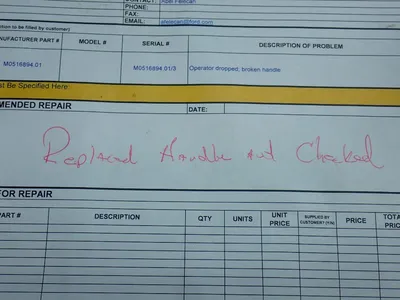 PHONE:
FAX:
EMAIL: afelecan@ford.com
tion to be filled by customer)
NUFACTURER PART # MODEL # SERIAL # DESCRIPTION OF PROBLEM
M0516894.01 M0516894.01/3 Operator dropped, broken handle
st Be Specified Here:
MMENDED REPAIR DATE:
Replaced Handle and Checked
FOR REPAIR
PART # DESCRIPTION QTY UNITS UNIT PRICE SUPPLIED BY CUSTOMER? (Y/N) PRICE TOTA PRIC